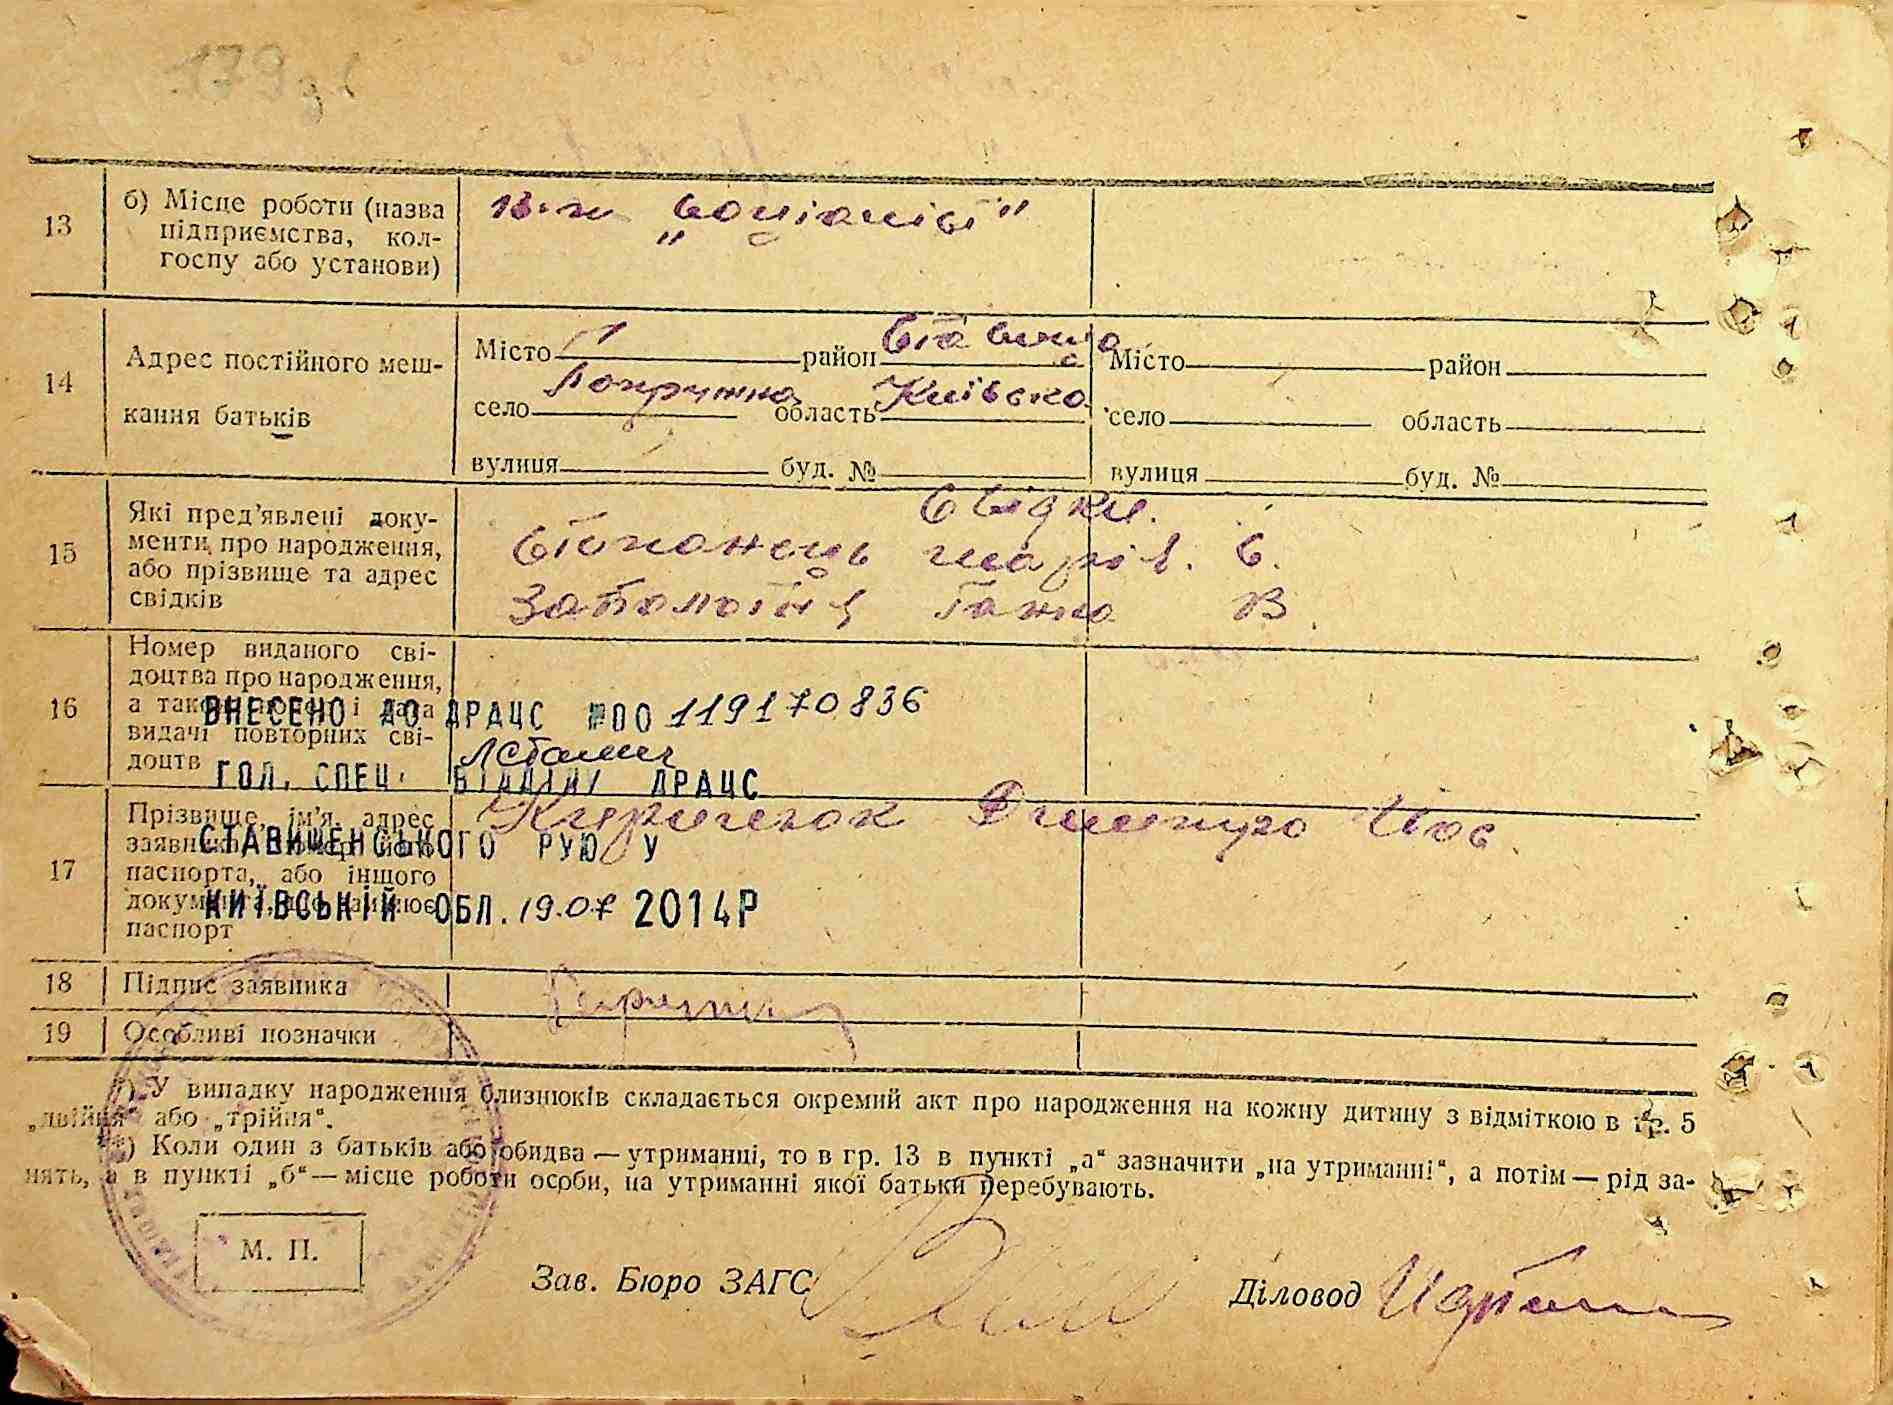 13
б) Місце роботи (назва
підприємства, кол-
госпу або установи)
14
Адрес постійного меш-
кання батьків
Місто район
село Попружна область Київська
вулиця буд. №
Місто район
село область
вулиця буд. №
15
Які пред'явлені доку-
менти про народження,
або прізвище та адрес
свідків
Свідки.
Ганна В.
16
Номер виданого сві-
доцтва про народження,
а також номер і дата
видачі повторних сві-
доцтв
ВНЕСЕНО ДО ДРАЦС №00119170836
ГОЛ. СПЕЦ. ВІДДІЛУ ДРАЦС
СТАВИЩЕНСЬКОГО РУЮ У
КИЇВСЬКІЙ ОБЛ. 19.07 2014Р
17
Прізвище, ім'я, адрес
заявника
паспорта, або іншого
паспорт
Кириченок
18
Підпис заявника
19
Особливі позначки
*) У випадку народження близнюків складається окремий акт про народження на кожну дитину з відміткою в гр. 5
„двійня“ або „трійня“.
**) Коли один з батьків або обидва — утриманці, то в гр. 13 в пункті „а“ зазначити „на утриманні“, а потім — рід за-
нять, а в пункті „б“ — місце роботи особи, на утриманні якої батьки перебувають.
М. П.
Зав. Бюро ЗАГС
Діловод